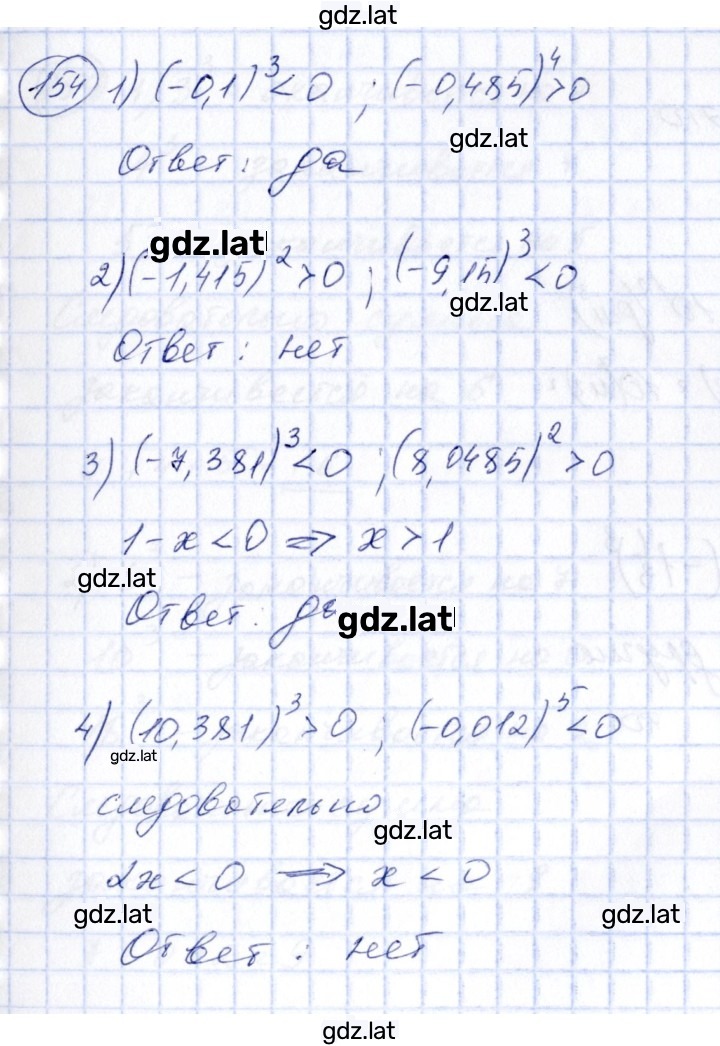 gdz.lat
154 1) (-0,1)³<0 ; (-0,485)⁴>0
gdz.lat
Ответ: да
gdz.lat
2) (-1,415)²>0 ; (-9,15)³<0
gdz.lat
Ответ: нет
3) (-7,381)³<0 ; (8,0485)²>0
1-x<0 ⇒ x>1
gdz.lat
Ответ: да
gdz.lat
4) (10,381)³>0 ; (-0,012)⁵<0
gdz.lat
следовательно
gdz.lat
2x<0 ⇒ x<0
gdz.lat gdz.lat
Ответ: нет
gdz.lat